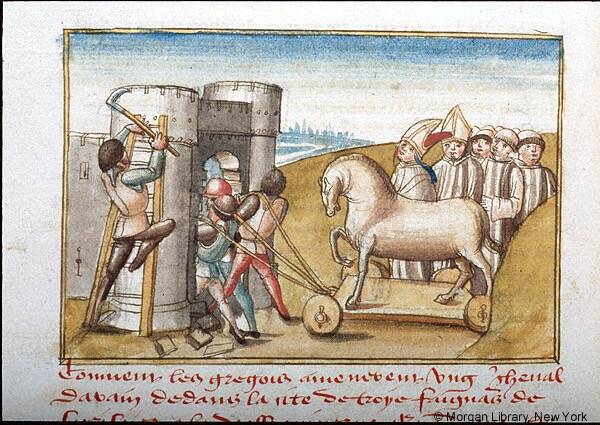 Comment les gregois amenerent ung cheval
davain dedans la cite de troye faignas de
© Morgan Library, New York